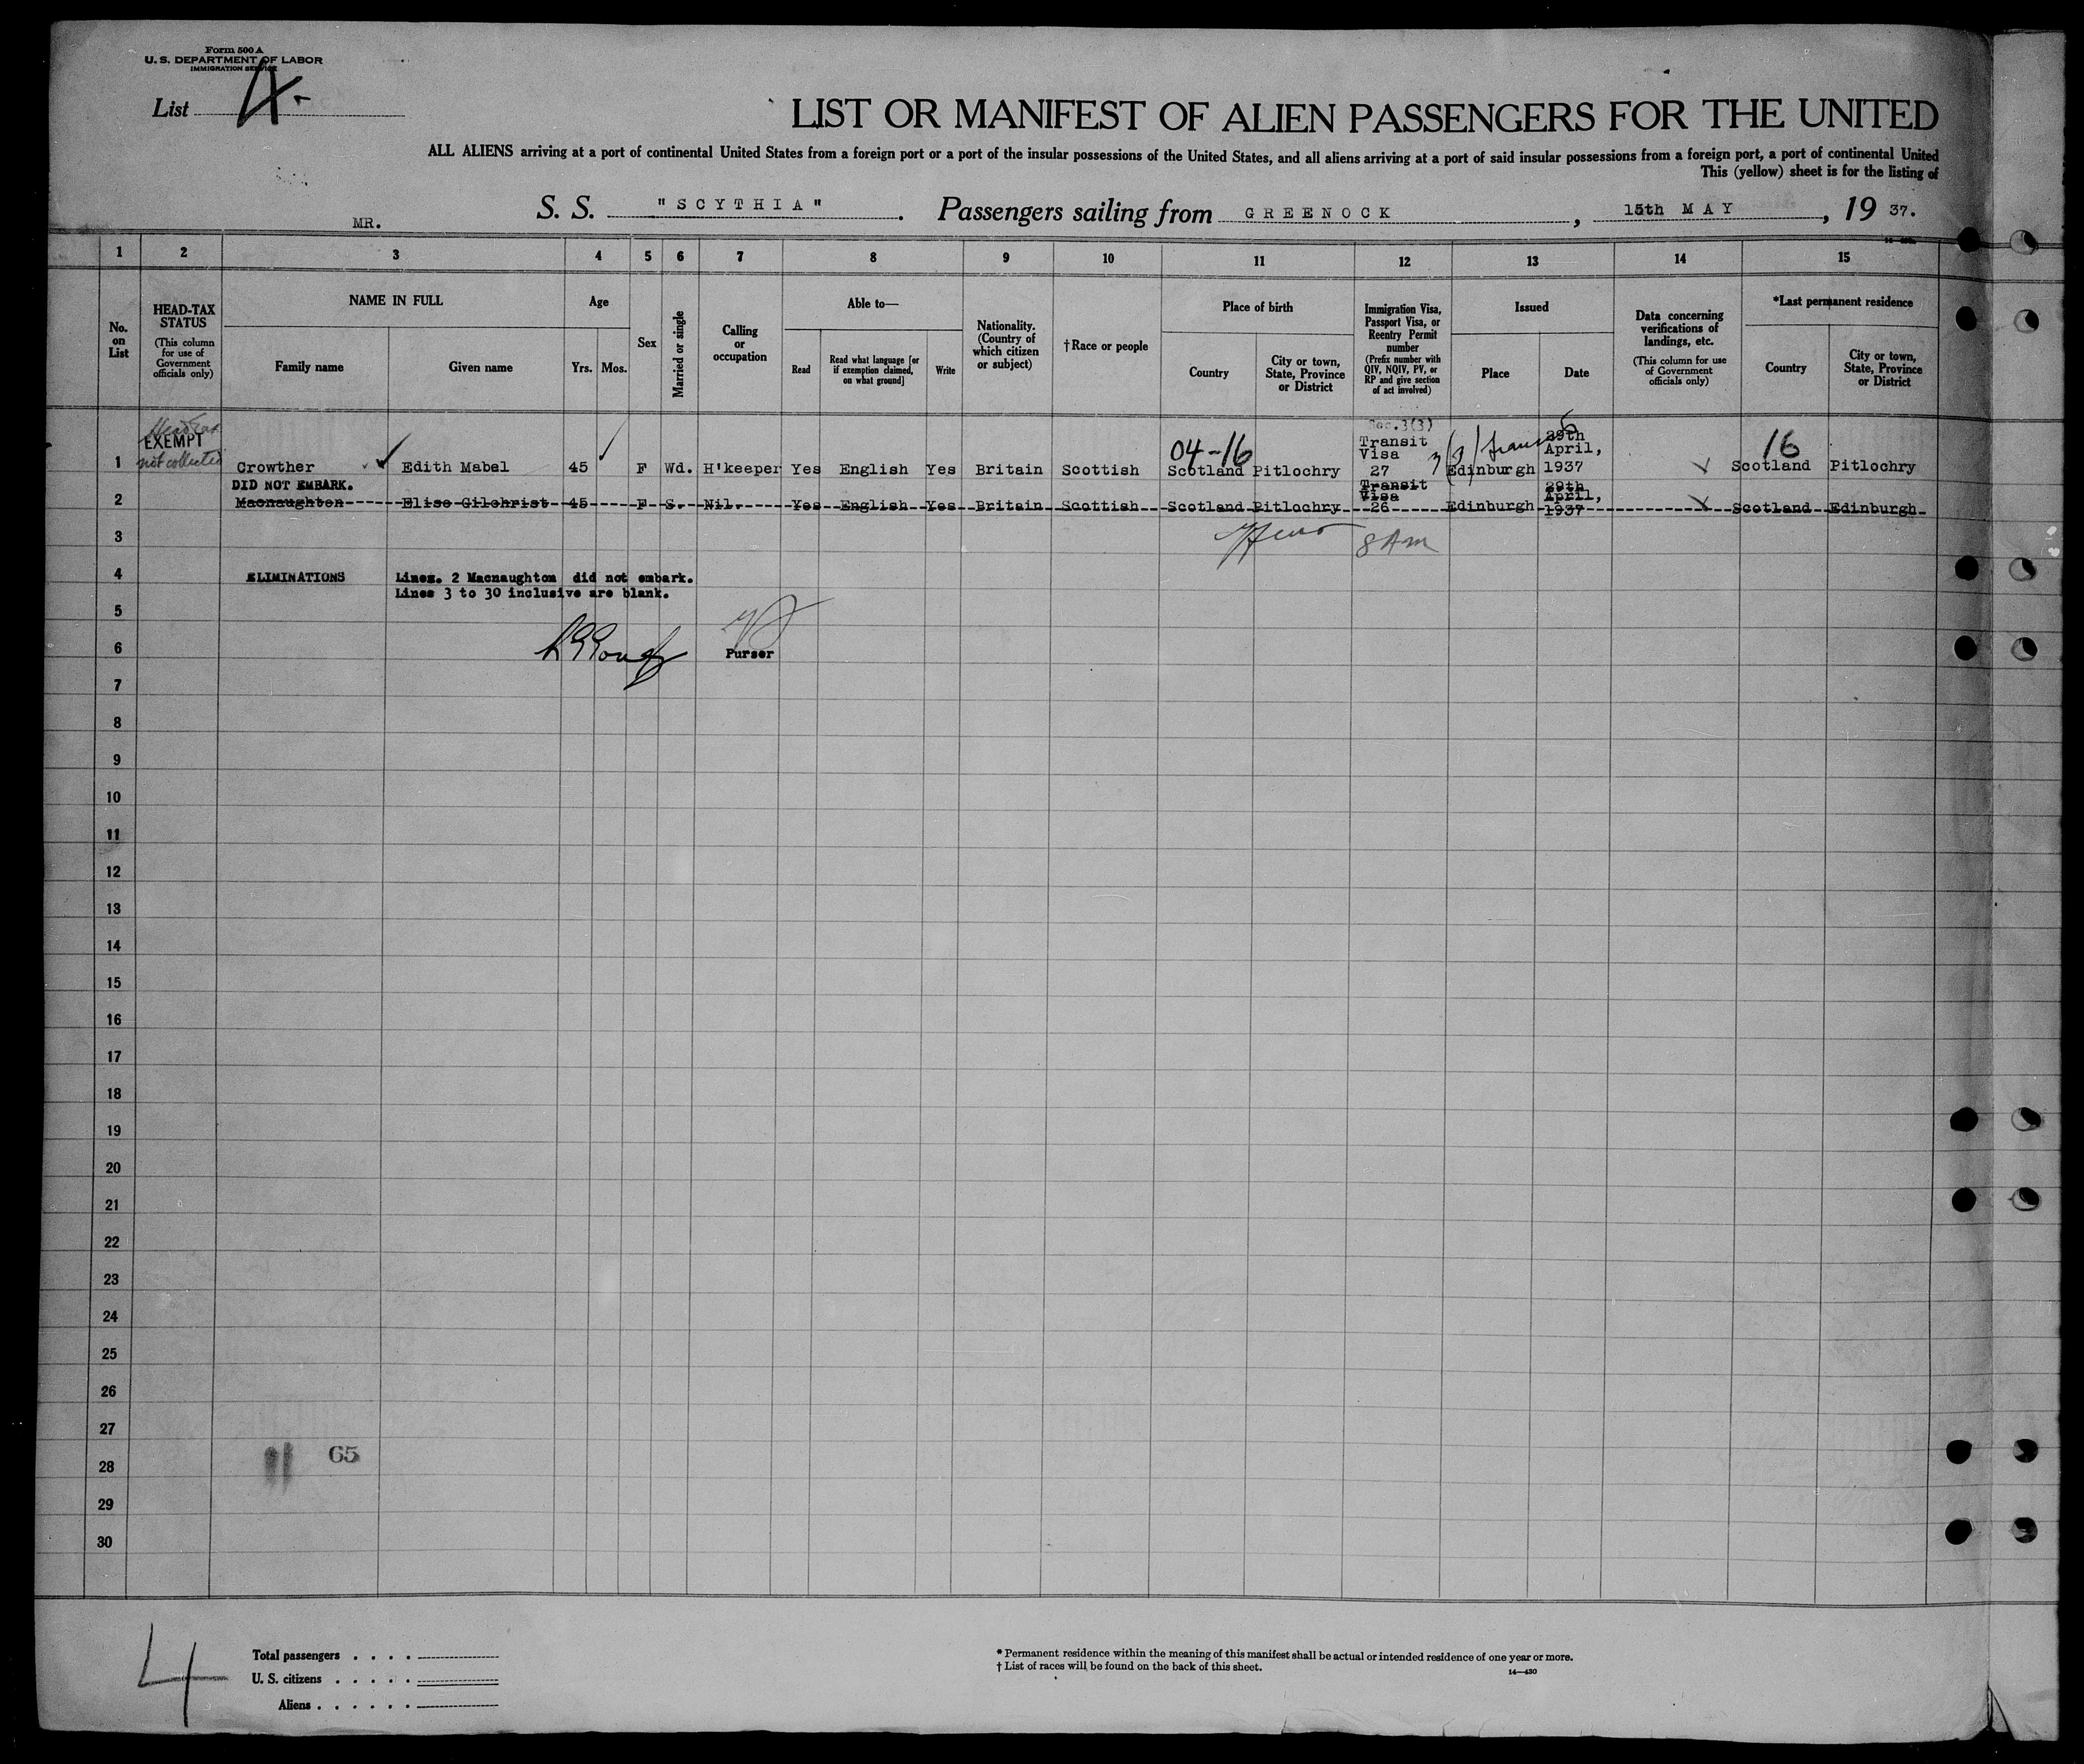 Form 500 A
U. S. DEPARTMENT OF LABOR
IMMIGRATION SERVICE
List 4-
LIST OR MANIFEST OF ALIEN PASSENGERS FOR THE UNITED
ALL ALIENS arriving at a port of continental United States from a foreign port or a port of the insular possessions of the United States, and all aliens arriving at a port of said insular possessions from a foreign port, a port of continental United
This (yellow) sheet is for the listing of
MR. S. S. "SCYTHIA". Passengers sailing from GREENOCK, 15th MAY, 19 37.
1 2 3 4 5 6 7 8 9 10 11 12 13 14 15
No. on List
HEAD-TAX STATUS (This column for use of Government officials only)
NAME IN FULL
Family name Given name
Age
Yrs. Mos.
Sex
Married or single
Calling or occupation
Able to—
Read
Read what language [or if exemption claimed, on what ground]
Write
Nationality. (Country of which citizen or subject)
†Race or people
Place of birth
Country
City or town, State, Province or District
Immigration Visa, Passport Visa, or Reentry Permit number (Prefix number with QIV, NQIV, PV, or RP and give section of act involved)
Issued
Place Date
Data concerning verifications of landings, etc. (This column for use of Government officials only)
*Last permanent residence
Country
City or town, State, Province or District
Head tax
EXEMPT
not collected
04-16
Sec.3(3)
3(3) transit
16
1 Crowther Edith Mabel 45 F Wd. H'keeper Yes English Yes Britain Scottish Scotland Pitlochry Transit Visa 27 Edinburgh 29th April, 1937 Scotland Pitlochry
DID NOT EMBARK.
2 Macnaughton Elise Gilchrist 45 F S. Nil. Yes English Yes Britain Scottish Scotland Pitlochry Transit Visa 26 Edinburgh 29th April, 1937 Scotland Edinburgh
3 8 Am
4 ELIMINATIONS Lines. 2 Macnaughton did not embark.
Lines 3 to 30 inclusive are blank.
5
6 Purser
7
8
9
10
11
12
13
14
15
16
17
18
19
20
21
22
23
24
25
26
27
65
28
29
30
4
Total passengers . . . .
U. S. citizens . . . . .
Aliens . . . . . .
* Permanent residence within the meaning of this manifest shall be actual or intended residence of one year or more.
† List of races will be found on the back of this sheet.
14—430